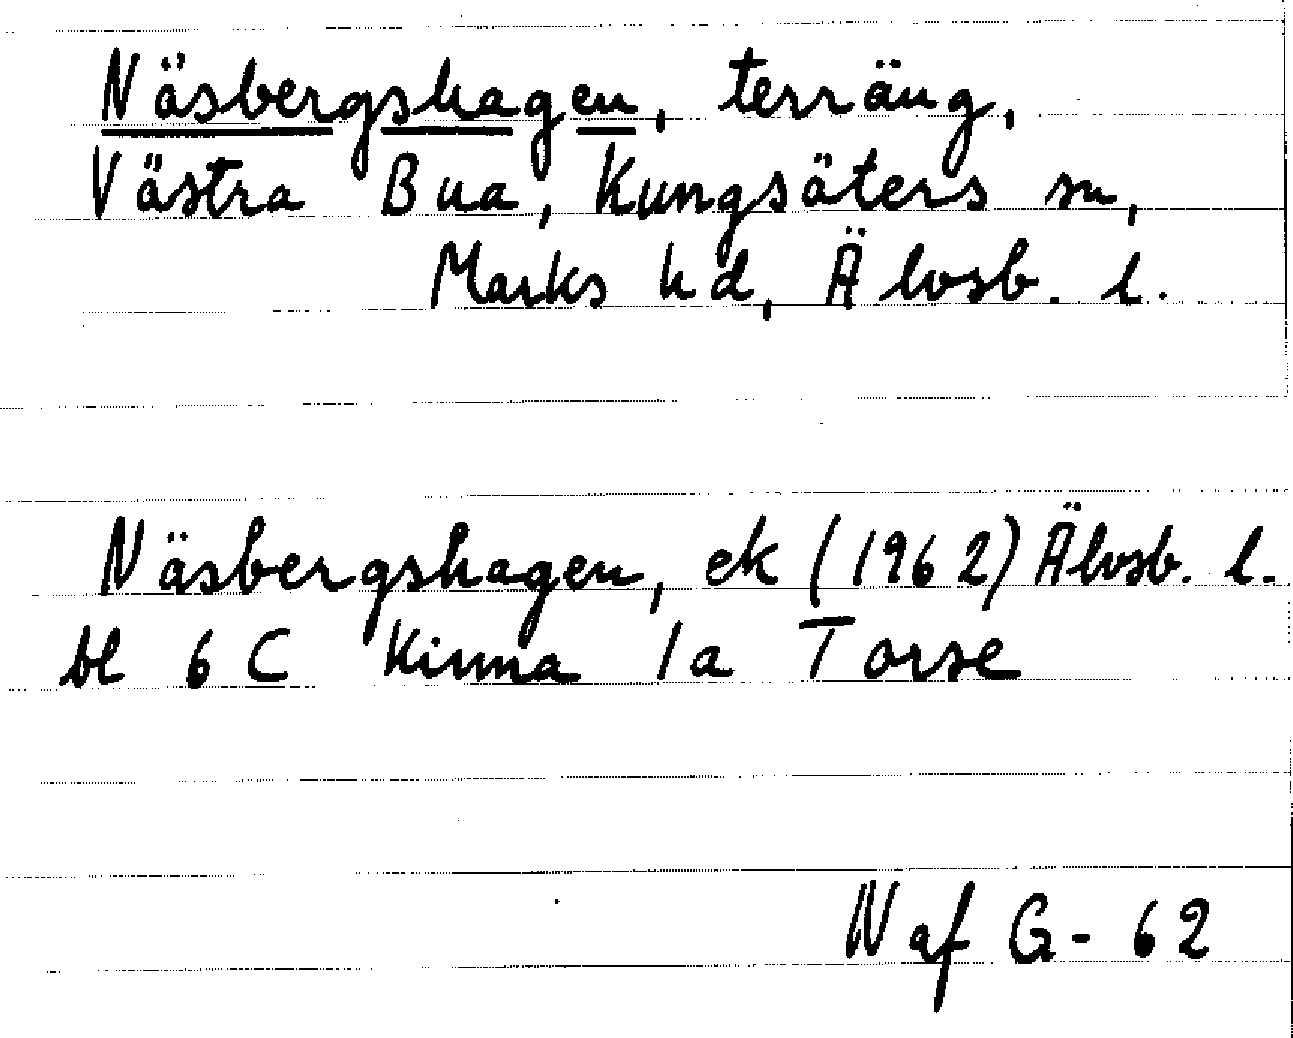 Näsbergshagen, terräng,
Västra Bua, Kungsäters sn,
Marks hd, Älvsb. l.
Näsbergshagen, ek (1962) Älvsb. l.
bl 6 C Kinna 1a Torse
N af G - 62